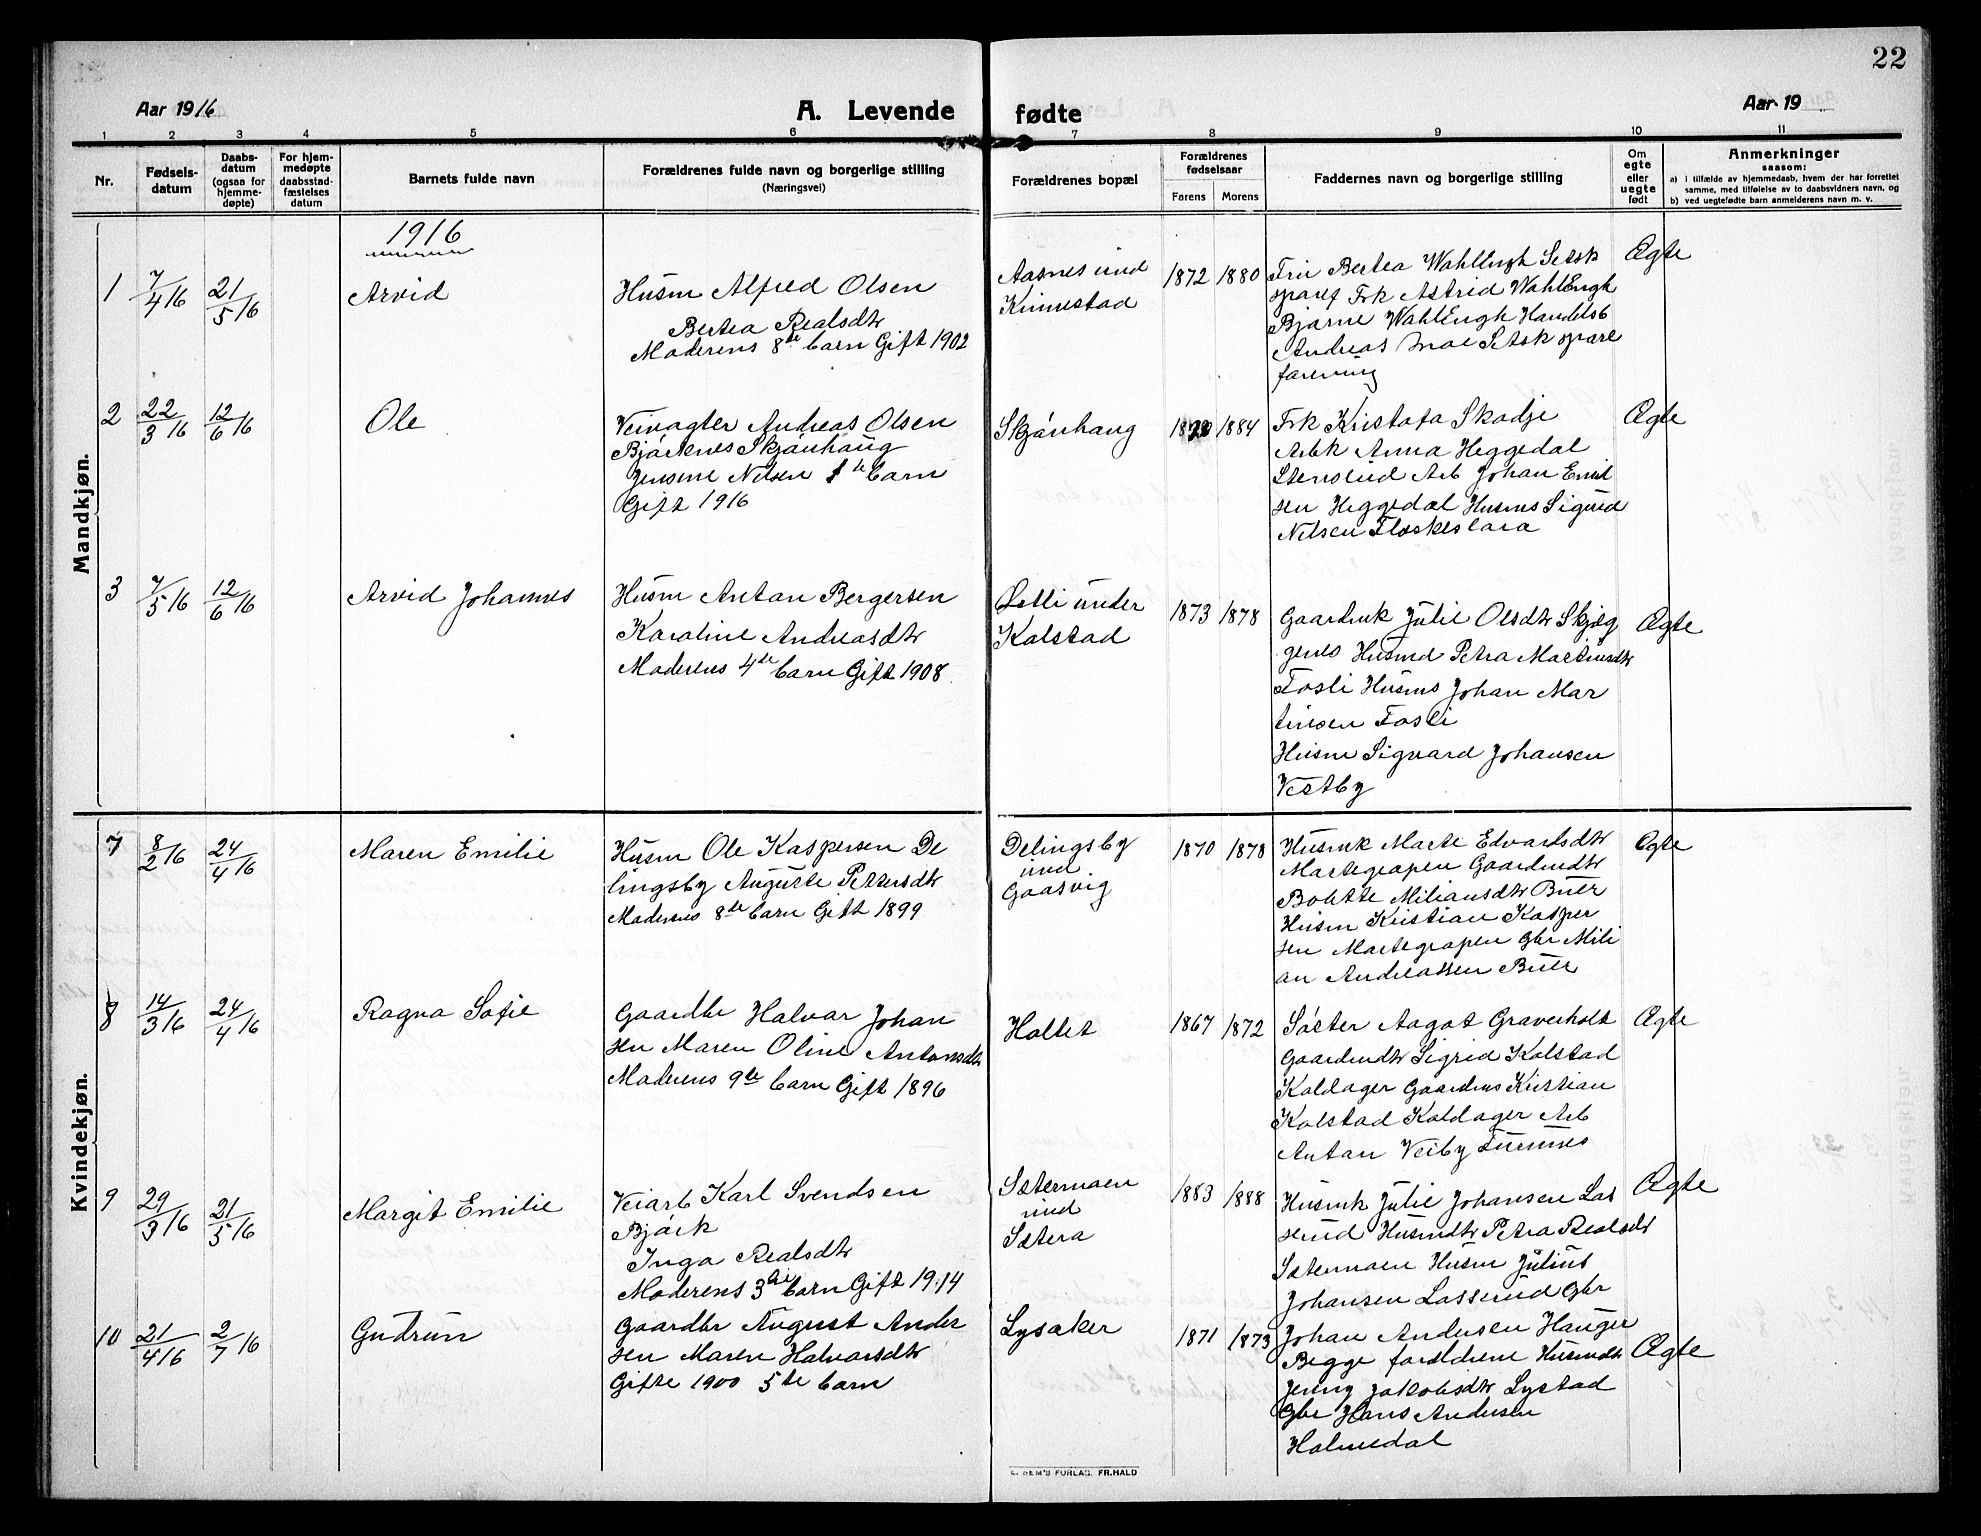 22
Aar 1916
A. Levende fødte
Aar 19
1 2 3 4 5 6 7 8 9 10 11
Nr.
Fødsels-
datum
Daabs-
datum
(ogsaa for
hjemme-
døpte)
For hjem-
medøpte
daabsstad-
fæstelses
datum
Barnets fulde navn
Forældrenes fulde navn og borgerlige stilling
(Næringsvei)
Forældrenes bopæl
Forældrenes
fødselsaar
Farens Morens
Faddernes navn og borgerlige stilling
Om
egte
eller
uegte
født
Anmerkninger
saasom:
a) i tilfælde av hjemmedaab, hvem der har forrettet
samme, med tilføielse av to daabsvidners navn, og
b) ved uegtefødte barn anmelderens navn m. v.
Mandkjøn.
1916
1 7/4 16 21/5 16
Arvid
Husm Alfred Olsen
Bertea Realsdtr
Moderens 8de barn Gift 1902
Aasnes und
Kinnestad
1872 1880
Fru Bertea WahlEngh Setsk
sparef Frk Astrid WahlEngh
Bjarne WahlEngh Handelsb
Andreas Moe Setsk spare
forening
Ægte
2 22/3 16 12/6 16
Ole
Veivogter Andreas Olsen
Bjørknes Skjønhaug
Jensine Nilsen 1de barn
Gift 1916
Skjønhaug
1884
Frk Kristofa Skodje
Arbk Anna Heggedal
Stenslud Arb Johan Emil
sen Heggedal Husms Sigurd
Nilsen Floskeslora
Ægte
3 7/5 16 12/6 16
Arvid Johannes
Husm Anton Bergersen
Karoline Andreasdtr
Moderens 4de barn Gift 1908
Letli under
Kolstad
1873 1878
Gaardmk Julie Olsdtr Skjøg
genes Husmd Petra Martinsdtr
Fosli Husms Johan Mar
tinsen Fosli
Husm Sigvard Johansen
Vestby
Ægte
Kvindekjøn.
7 8/2 16 24/4 16
Maren Emilie
Husm Ole Kaspersen De
lingsby Auguste Pettersdtr
Moderens 8de barn Gift 1899
Delingsby
und
Gaasvig
1870 1878
Husmk Marte Edvardsdtr
Martegrapen Gaardmdtr
Bolette Miliansdtr Buer
Husm Kristian Kasper
sen Martegrapen Gbr Mili
an Andreassen Buer
Ægte
8 14/3 16 24/4 16
Ragna Sofie
Gaardbr Halvar Johan
sen Maren Oline Antonsdtr
Moderens 9de barn Gift 1896
Holtet
1867 1872
Søster Aagot Graverholt
Gaardmdtr Sigrid Kolstad
Koldager Gaardms Kristian
Kolstad Koldager Arb
Anton Veiby Tumnes
Ægte
9 29/3 16 21/5 16
Margit Emilie
Veiarb Karl Svendsen
Bjørk
Inga Realsdtr
Moderens 3die barn Gift 1914
Sætermoen
und
Sætera
1883 1888
Husmk Julie Johansen Las
serud Husmdtr Petra Realsdtr
Sætermoen Husm Julius
Johansen Lasserud Gbr
Johan Andersen Hauger
Ægte
10 21/4 16 2/7 16
Gudrun
Gaardbr August Ander
sen Maren Halvarsdtr
Gifte 1900 5te barn
Lysaker
1871 1873
Begge forældrene Husmdtr
Jenny Jakobsdtr Lystad
Gbr Hans Andersen
Holmedal
Ægte
E. SEM'S FORLAG. FR.HALD